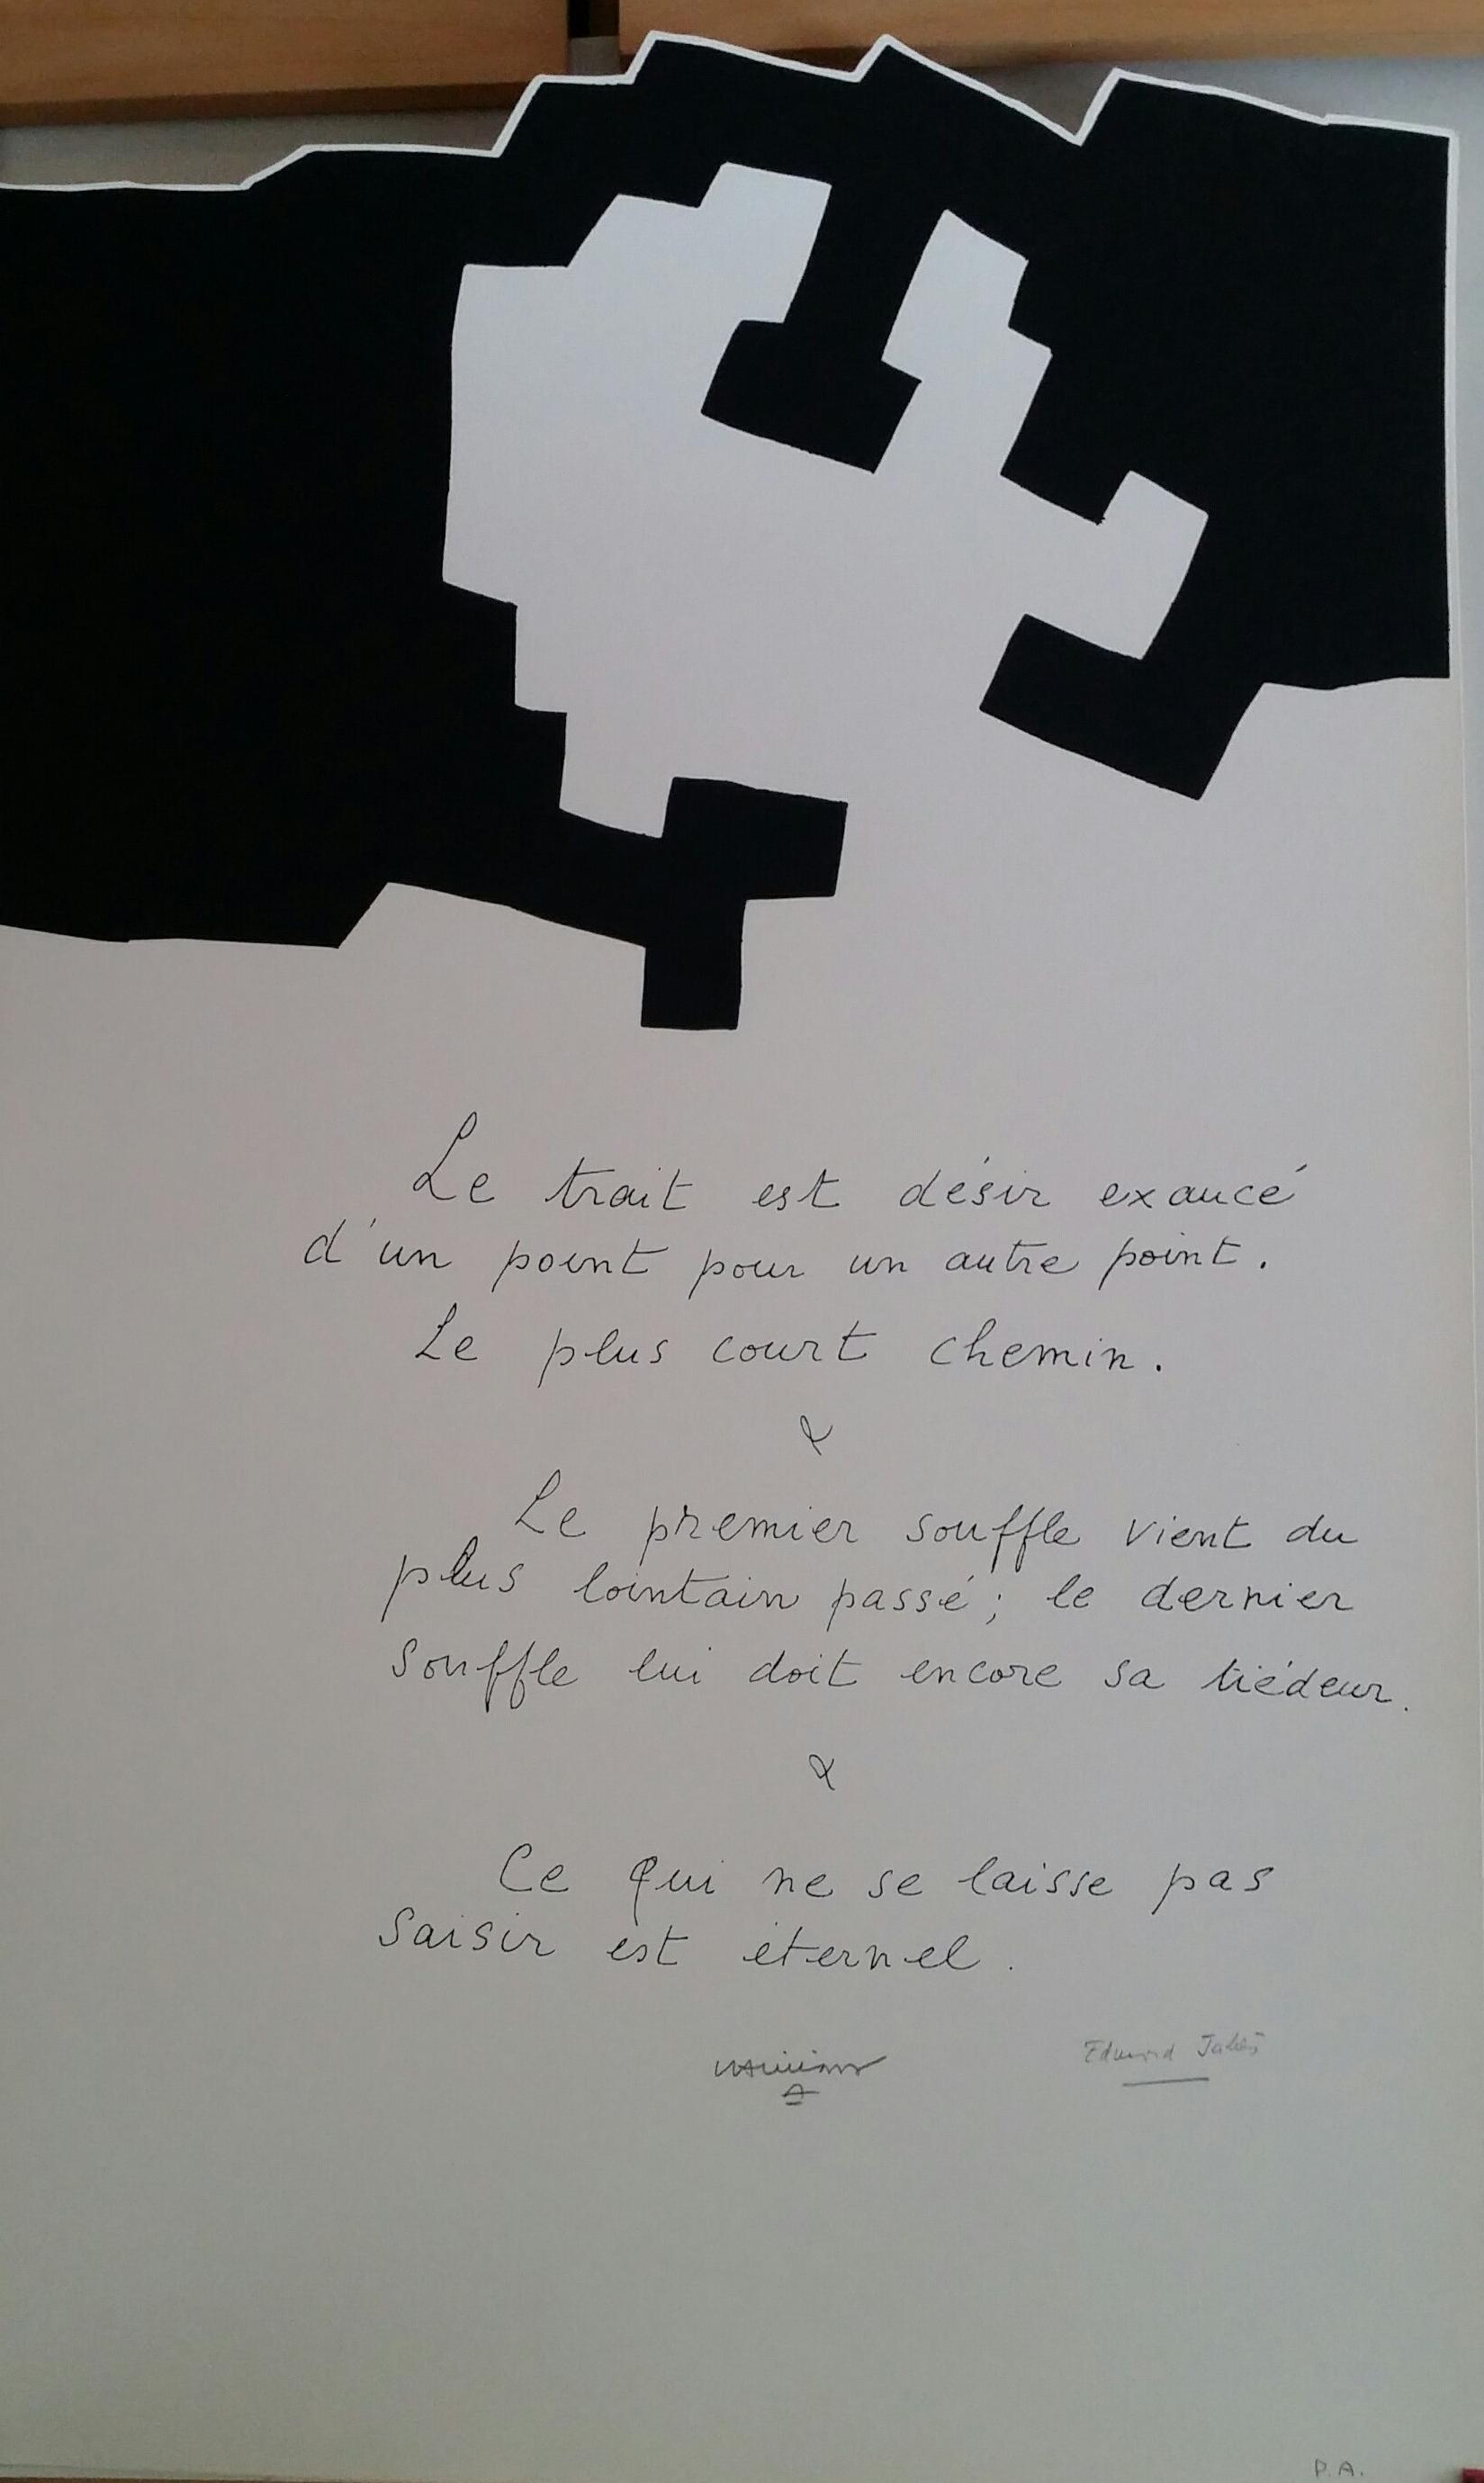 Le trait est désir exaucé
d'un point pour un autre point.
Le plus court chemin.
Le premier souffle vient du
plus lointain passé; le dernier
souffle lui doit encore sa tiédeur.
Ce qui ne se laisse pas
saisir est éternel.
Edmond Jabès
P.A.